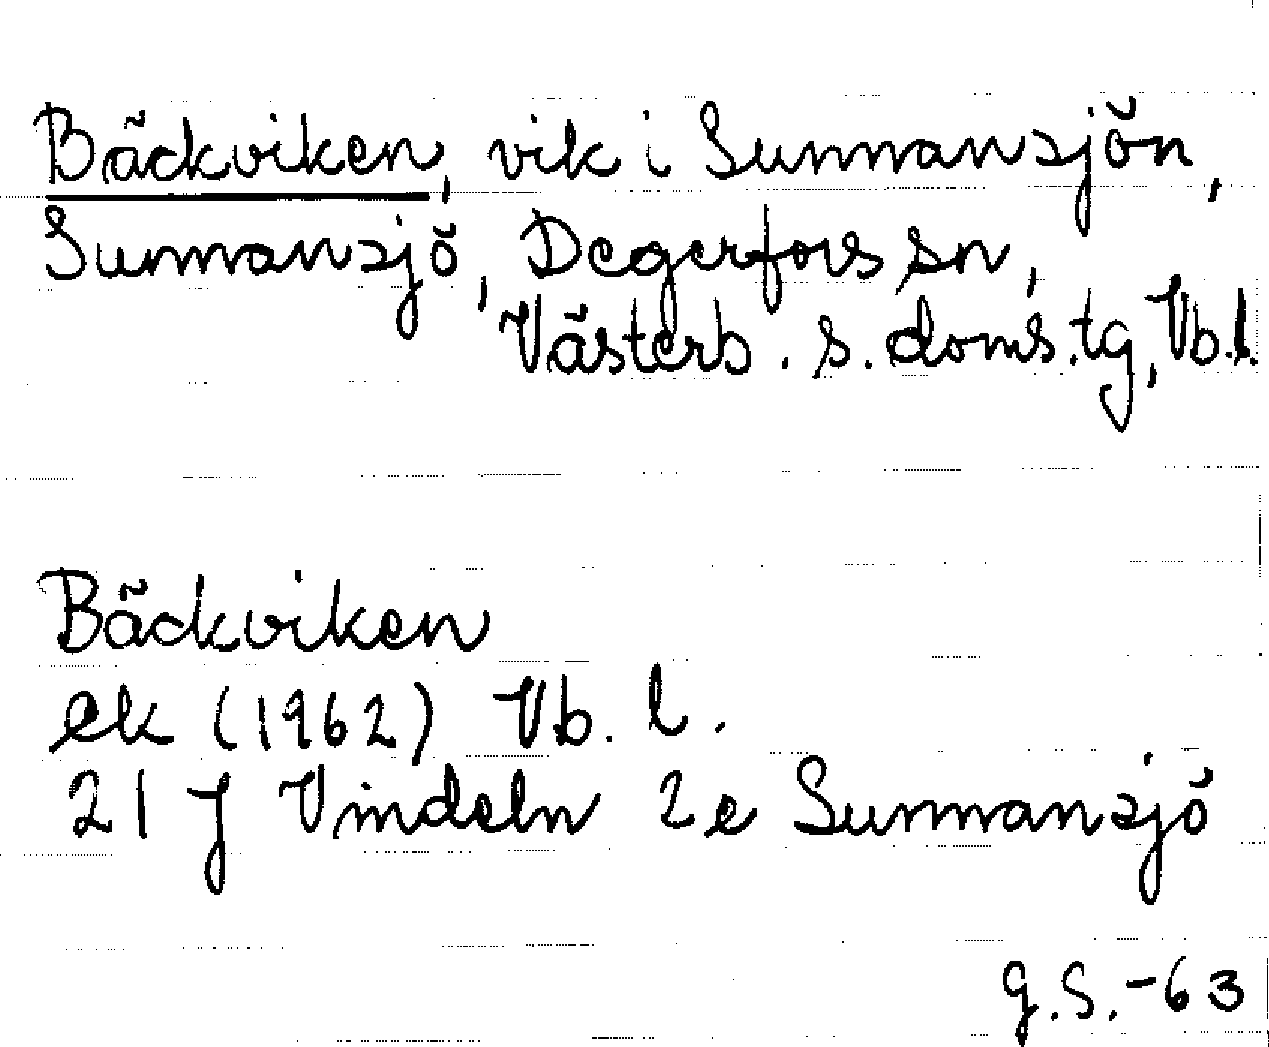 Bäckviken, vik i Sunnansjön,
Sunnansjö, Degerfors sn,
Västerb. s. doms.tg, Vb.l.
Bäckviken
ek (1962) Vb. l.
21 J Vindeln 2e Sunnansjö
G.S.-63